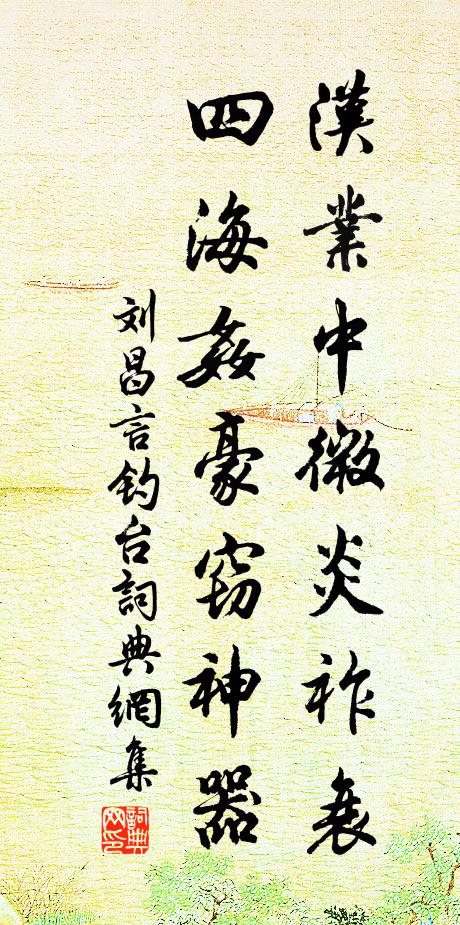 漢業中微炎祚衰
四海姦豪窃神器
刘昌言钓台詞典網集
詞典网印